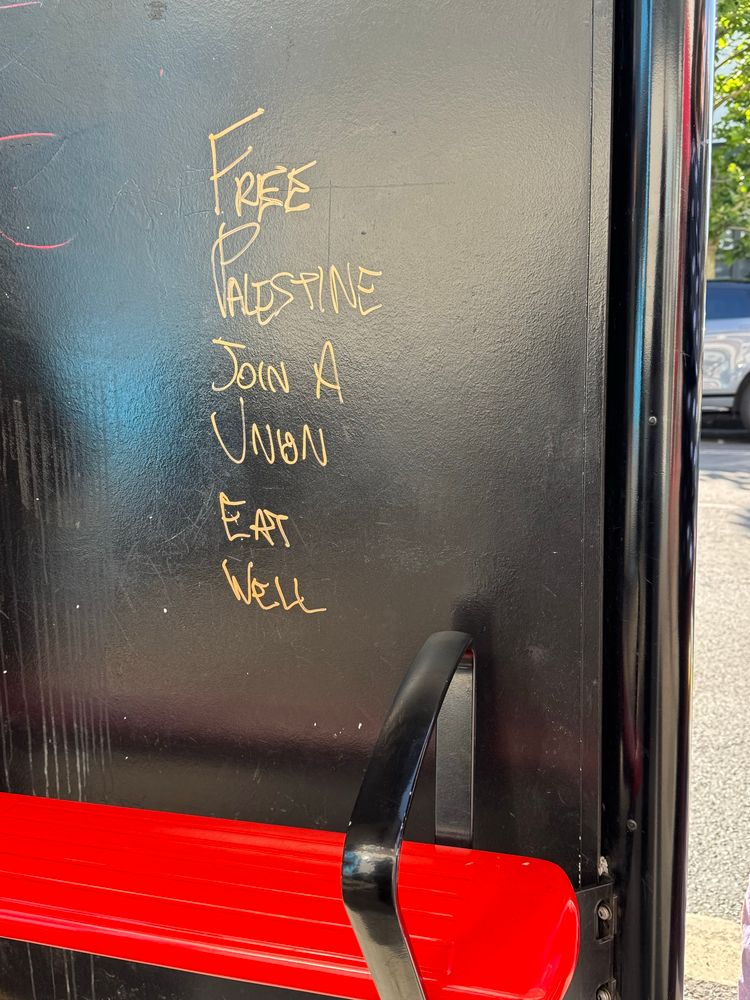 FREE
PALESTINE
JOIN A
UNION
EAT
WELL